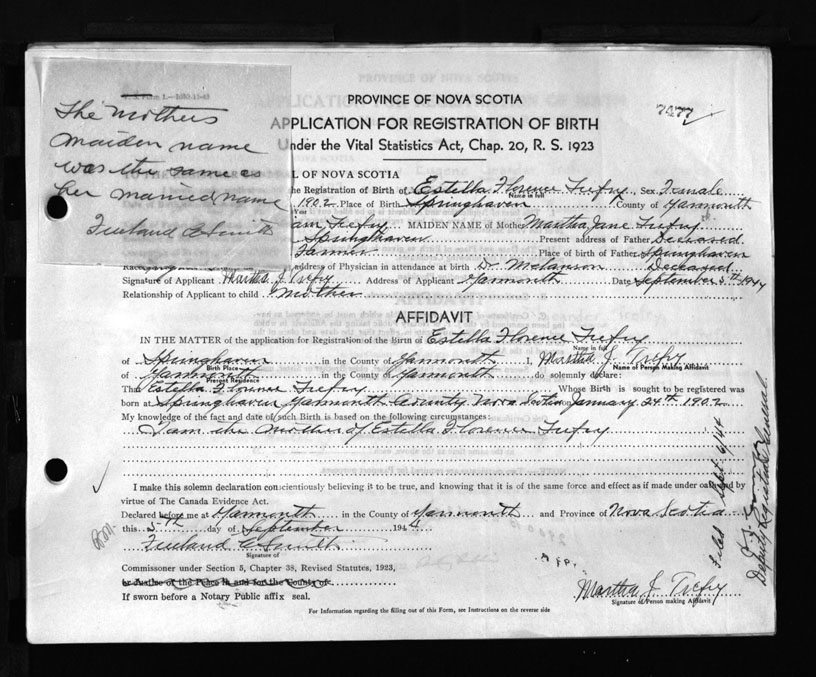 The mothers
maiden name
was the same as
her married name
PROVINCE OF NOVA SCOTIA
7477
APPLICATION FOR REGISTRATION OF BIRTH
Under the Vital Statistics Act, Chap. 20, R. S. 1923
L OF NOVA SCOTIA
he Registration of Birth of Estella Florence Trefry, Sex Female
Name in full
1902 Place of Birth Springhaven County of Yarmouth
Year
iam Trefry MAIDEN NAME of Mother Martha Jane Trefry
Springhaven Present address of Father Deceased
Farmer Place of birth of Father Springhaven
address of Physician in attendance at birth Dr Melanson Deceased
Signature of Applicant Martha J Trefry Address of Applicant Yarmouth Date September 5th 1944
Relationship of Applicant to child Mother
AFFIDAVIT
IN THE MATTER of the application for Registration of the Birth of Estella Florence Trefry
Name in full
of Springhaven in the County of Yarmouth I, Martha J. Trefry
Birth Place
Name of Person Making Affidavit
of Yarmouth in the County of Yarmouth do solemnly declare:
Present Residence
The Estella Florence Trefry Whose Birth is sought to be registered was
born at Springhaven Yarmouth County Nova Scotia on January 24th 1902
My knowledge of the fact and date of such Birth is based on the following circumstances:
I am the mother of Estella Florence Trefry
I make this solemn declaration conscientiously believing it to be true, and knowing that it is of the same force and effect as if made under oath and by
virtue of The Canada Evidence Act.
Declared before me at Yarmouth in the County of Yarmouth and Province of Nova Scotia
this 5th day of September 1944
Signature of
Commissioner under Section 5, Chapter 38, Revised Statutes, 1923,
or Justice of the Peace in and for the County of
If sworn before a Notary Public affix seal.
Martha J Trefry
Signature of Person making Affidavit
For Information regarding the filling out of this Form, see Instructions on the reverse side
Filed Sept. 6/44
Deputy Registrar General.